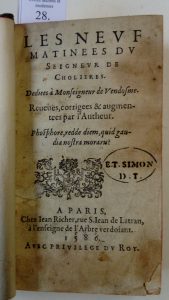 modernes
28.
LES NEVF
MATINEES DV
SEIGNEVR DE
CHOLIERES.
Dediees à Monseigneur de Vendosme.
Reueuës, corrigees & augmen-
tees par l'Autheur.
Phosphore, redde diem, quid gau-
dia nostra moraris?
ET. SIMON
D. T.
A PARIS,
Chez Iean Richer, rue S. Iean de Latran,
à l'enseigne de l'Arbre verdoiant.
1586.
AVEC PRIVILEGE DV ROY.